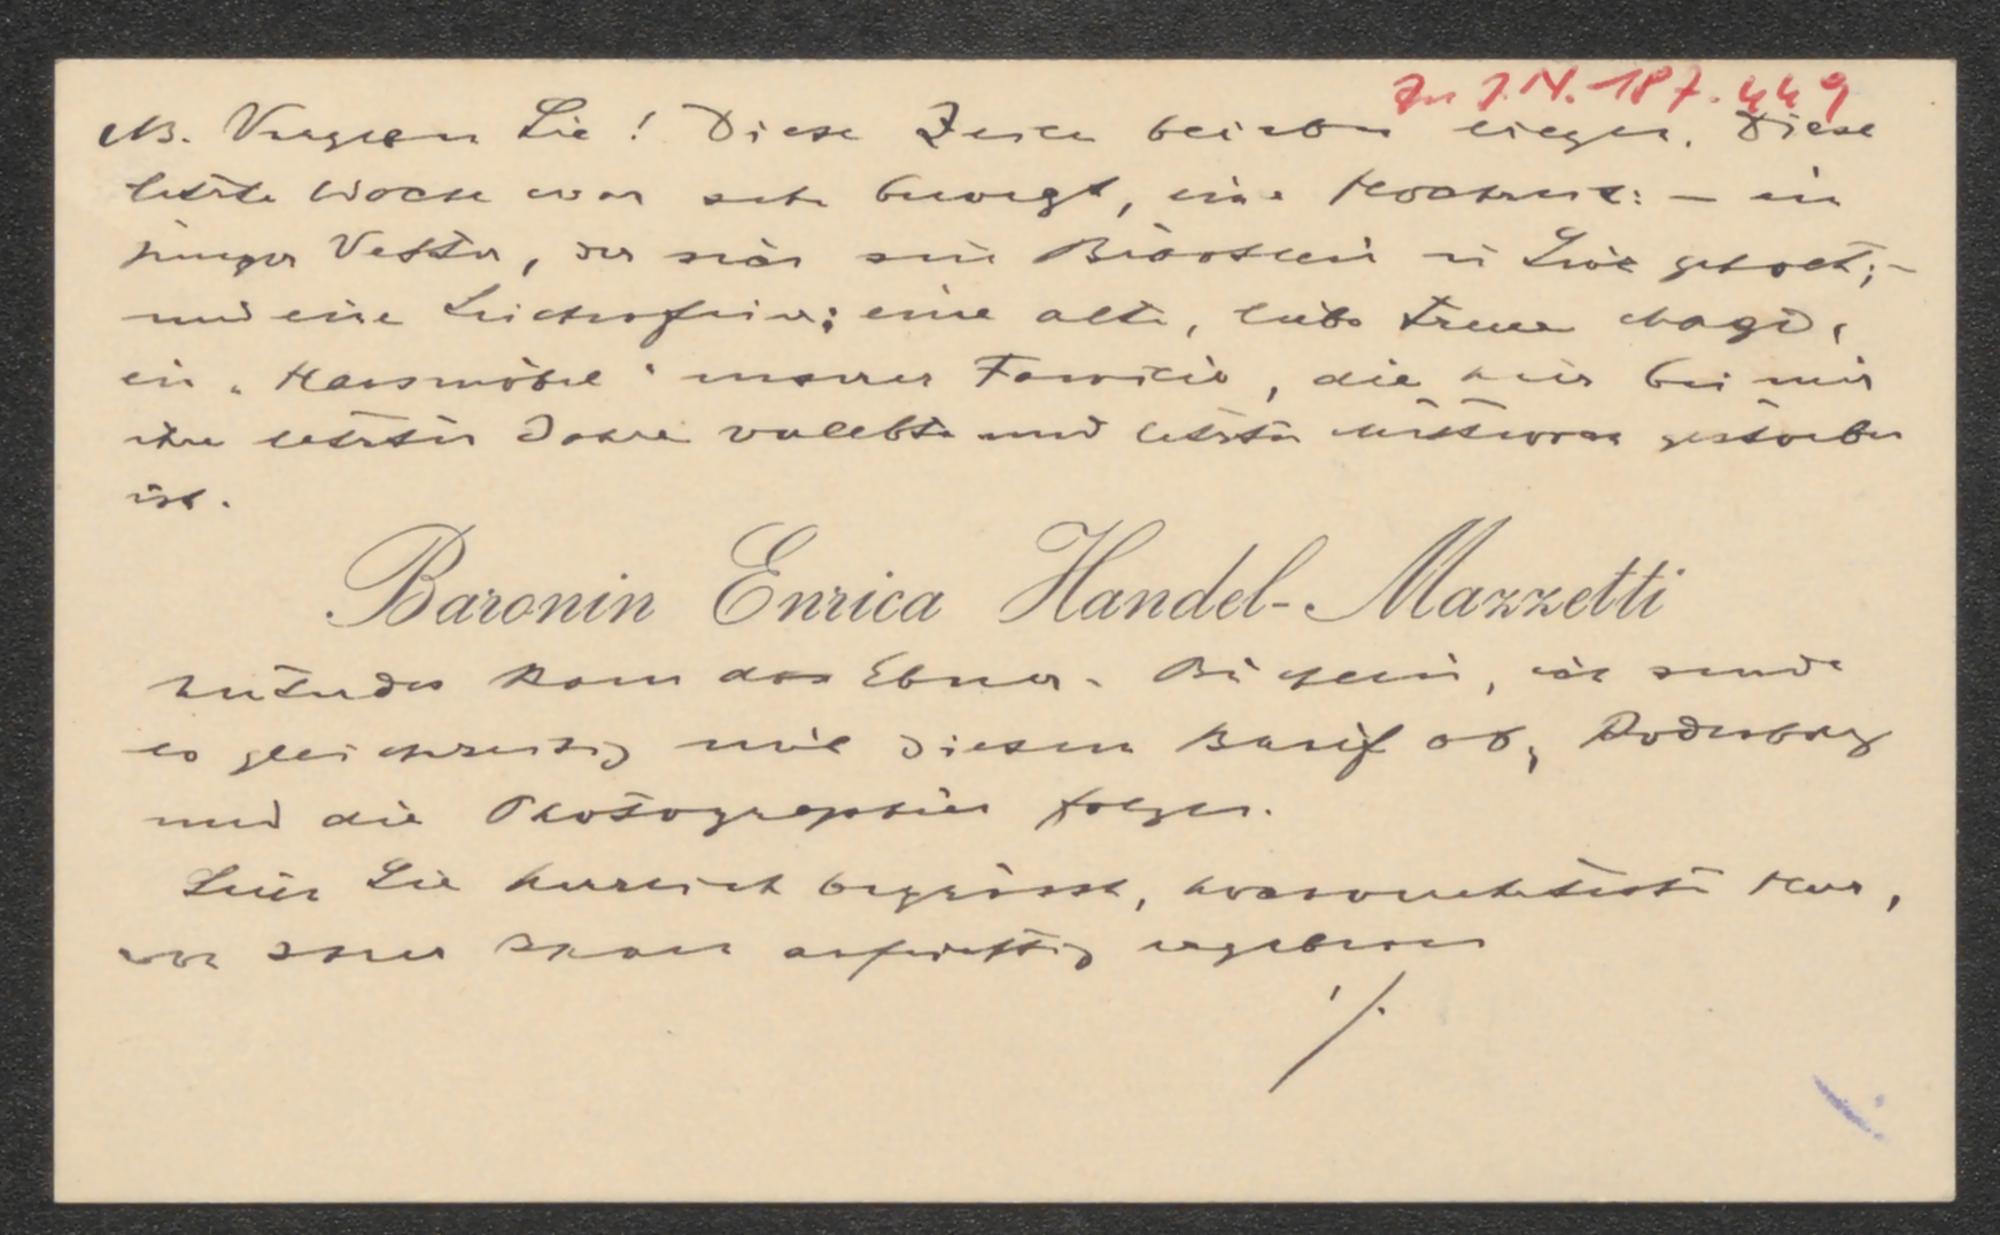 Zu I.N. 187.449
NB. Vergeben Sie! Diese Zeilen blieben liegen. Diese
letzte Woche war sehr bewegt, eine Hochzeit: – ein
junger Vetter, der sich sein Bräutlein in Linz geholt; –
und eine Leichenfeier; eine alte, liebe treue Magd,
ein „Hausmöbel" unserer Familie, die hier bei mir
ihre letzten Jahre verlebte und letzten Mittwoch gestorben
ist.
Baronin Enrica Handel-Mazzetti
kam das Ebner-Büchlein, ich sende
es gleichzeitig mit diesem Brief ab, Rodenberg
und die Photographien folgen.
Seien Sie herzlich begrüsst, hochverehrtester Herr,
von Ihrer Ihnen aufrichtig ergebenen